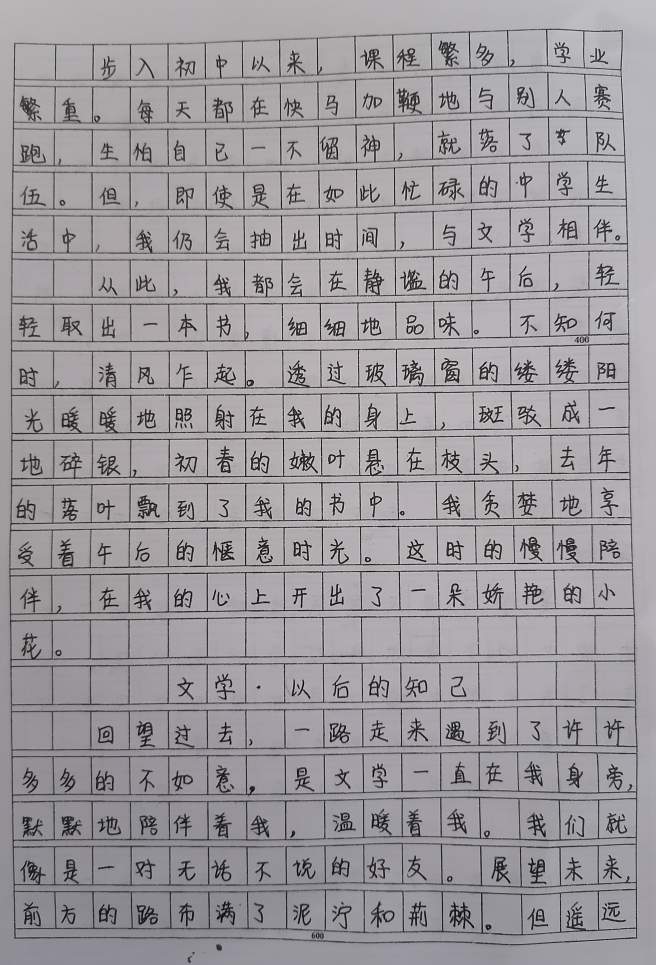 步入初中以来，课程繁多，学业
繁重。每天都在快马加鞭地与别人赛
跑，生怕自己一不留神，就落了队
伍。但，即使是在如此忙碌的中学生
活中，我仍会抽出时间，与文学相伴。
从此，我都会在静谧的午后，轻
轻取出一本书，细细地品味。不知何
400
时，清风乍起。透过玻璃窗的缕缕阳
光暖暖地照射在我的身上，斑驳成一
地碎银，初春的嫩叶悬在枝头，去年
的落叶飘到了我的书中。我贪婪地享
受着午后的惬意时光。这时的慢慢陪
伴，在我的心上开出了一朵娇艳的小
花。
文学·以后的知己
回望过去，一路走来遇到了许许
多多的不如意，是文学一直在我身旁，
默默地陪伴着我，温暖着我。我们就
像是一对无话不说的好友。展望未来，
前方的路布满了泥泞和荆棘。但遥远
600